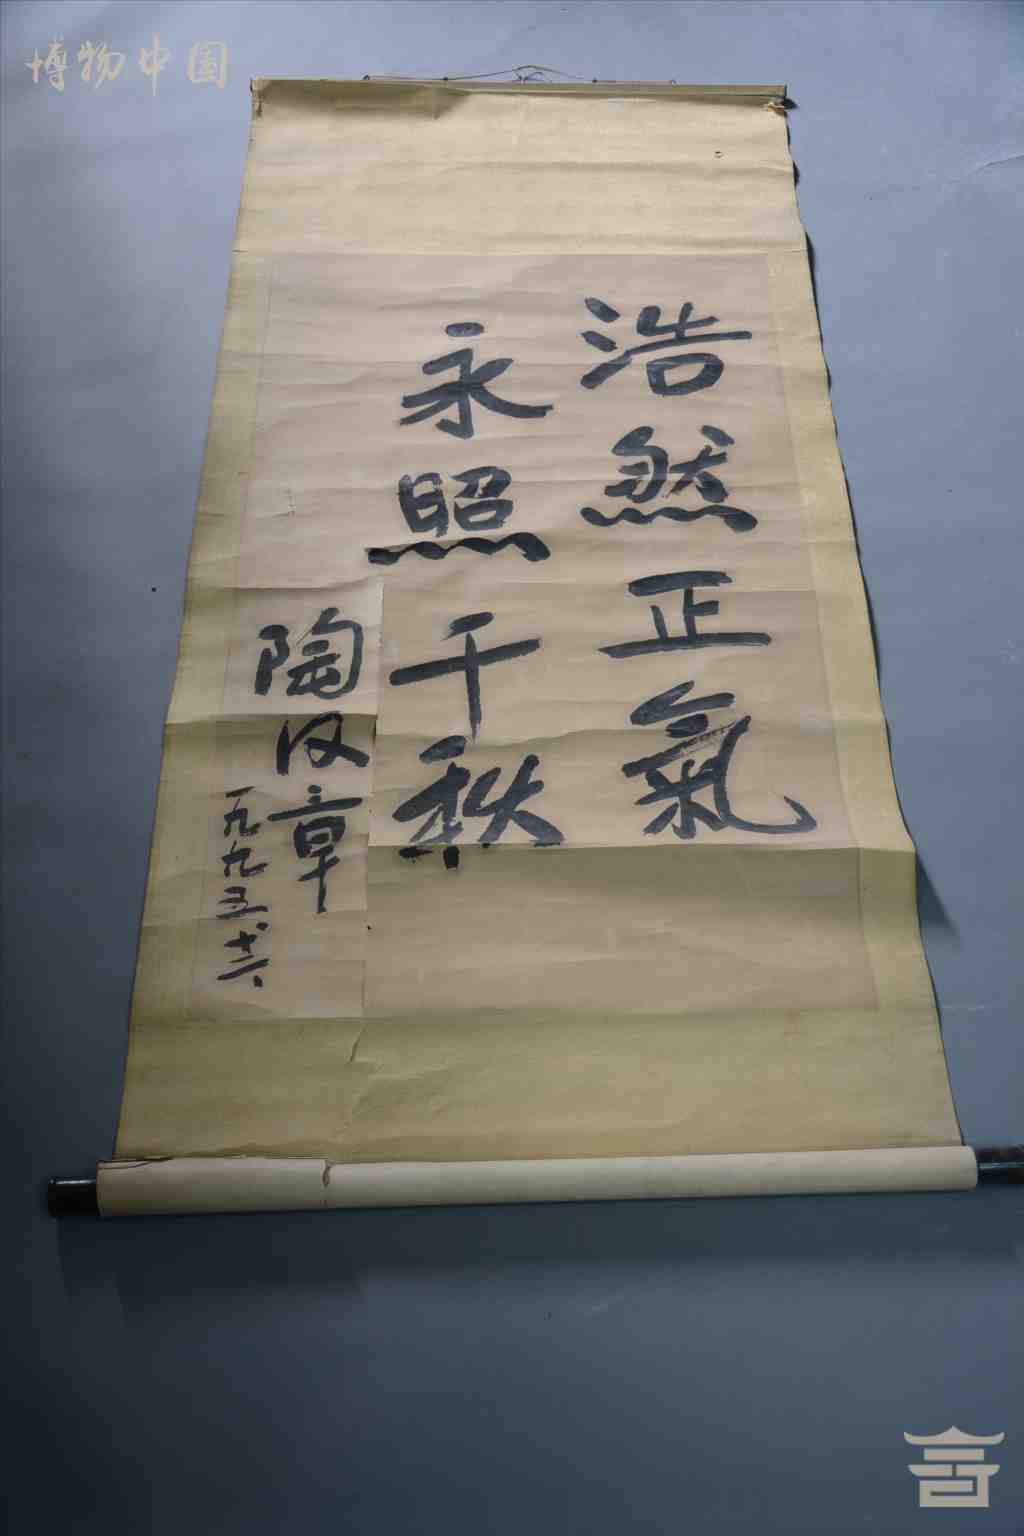 博物中国
浩然正氣
永照千秋
陶汉章
一九九五.十二.六